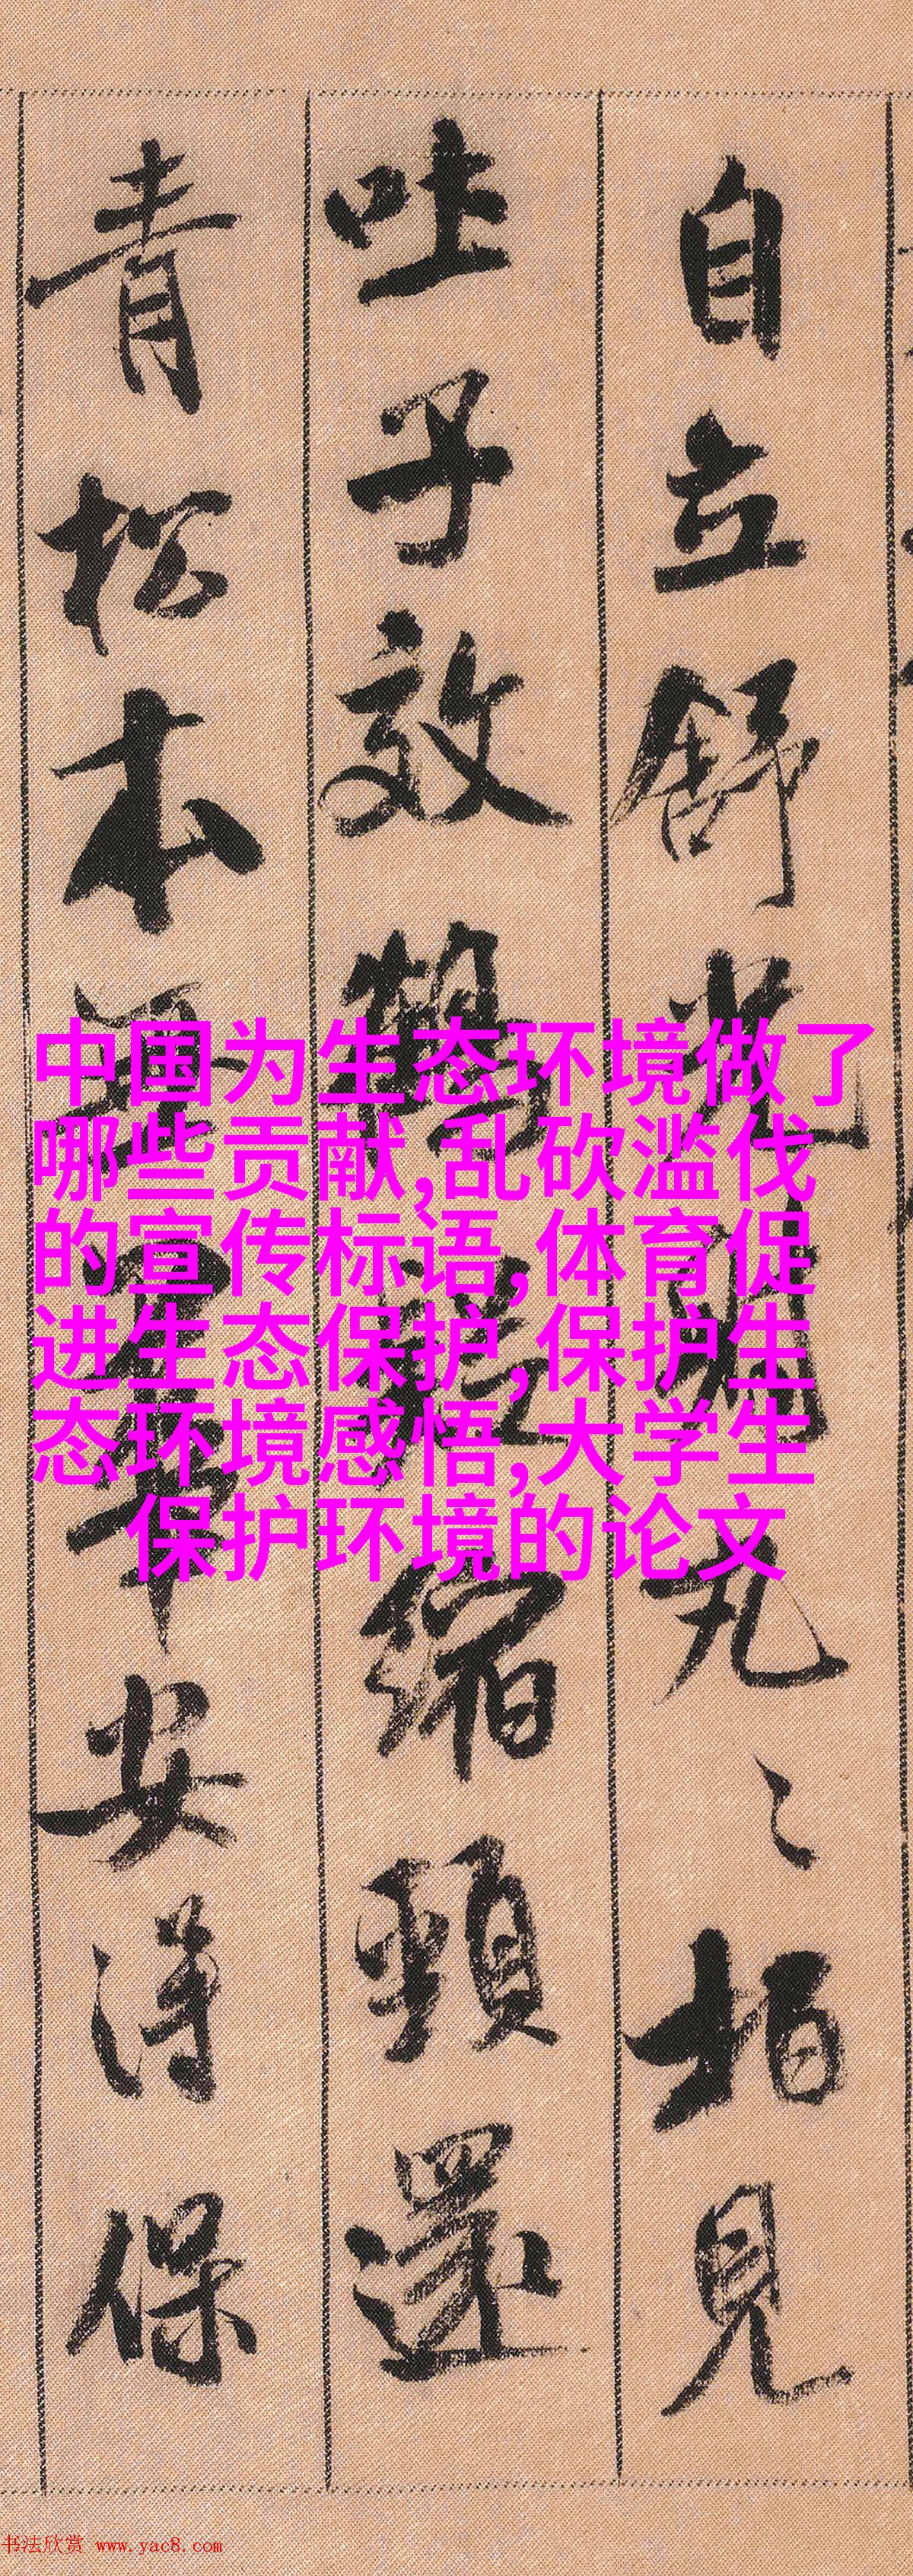 自立舒光射丸〻柏見
吐子效鶴疑縮頸還
青松本無華安得保
中国为生态环境做了
哪些贡献,乱砍滥伐
的宣传标语,体育促
进生态保护,保护生
态环境感悟,大学生
保护环境的论文
书法欣赏 www.yac8.com